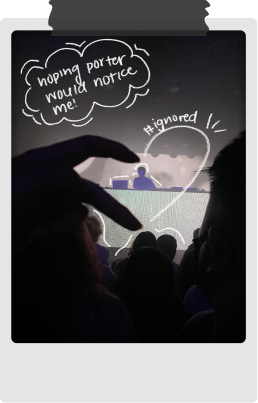 hoping porter
would notice
me!
#ignored